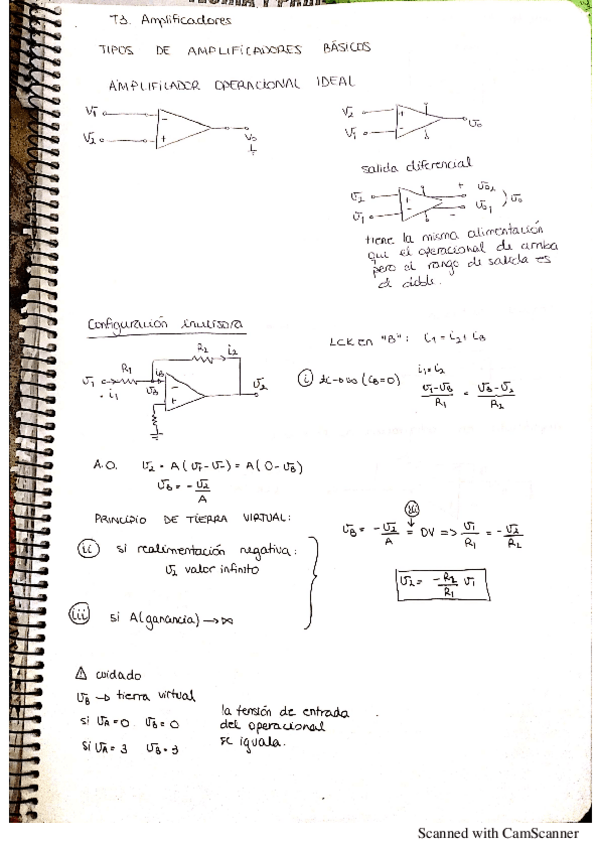 T3. Amplificadores
TIPOS DE AMPLIFICADORES BÁSICOS
AMPLIFICADOR OPERACIONAL IDEAL
V1
V2
V0
V2
V1
V0
salida diferencial
V2
V1
V02
V01
V0
tiene la misma alimentación
que el operacional de arriba
pero el rango de salida es
el doble.
Configuración inversora
R1
R2
i2
V1
i1
iB
VB
V2
LCK en "B": i1 = i2 + iB
i) (iB=0) i1 = i2
V1-VB / R1 = VB-V2 / R2
A.O. V2 = A(V+-V-) = A(0-VB)
VB = -V2/A
PRINCIPIO DE TIERRA VIRTUAL:
ii) si realimentación negativa:
V2 valor infinito
iii) si A(ganancia) → ∞
iii)
VB = -V2/A = 0V => V1/R1 = -V2/R2
V2 = -R2/R1 V1
⚠ cuidado
VB → tierra virtual
si VA = 0 VB = 0
si VA = 3 VB = 3
la tensión de entrada
del operacional
se iguala.
Scanned with CamScanner